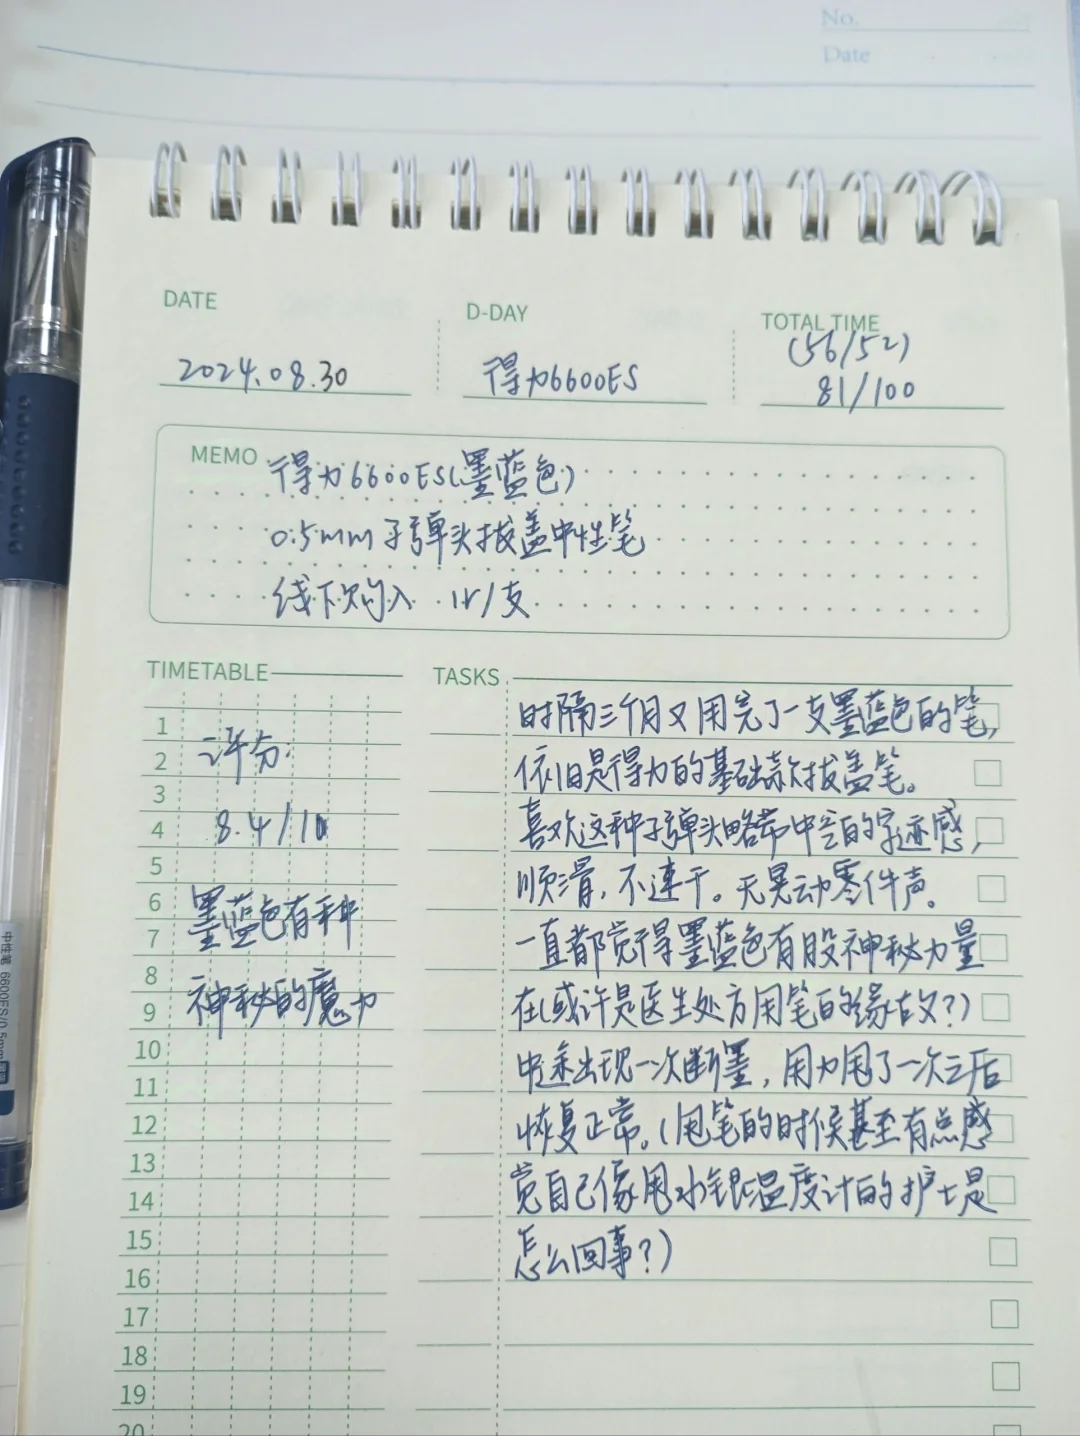 No.
Date
DATE
D-DAY
TOTAL TIME
(56/52)
2024.08.30
得力6600ES
81/100
MEMO
得力6600ES(墨蓝色)
0.5mm子弹头拔盖中性笔
线下购入 1r/支
TIMETABLE
TASKS
时隔三个月又用完了一支墨蓝色的笔,
依旧是得力的基础款拔盖笔。
喜欢这种子弹头略带中空的字迹感,
顺滑,不速干。无晃动零件声。
一直都觉得墨蓝色有股神秘力量
在(或许是医生处方用笔的缘故?)
中途出现一次断墨,用力甩了一次之后
恢复正常。(甩笔的时候甚至有点感
觉自己像甩水银温度计的护士是
怎么回事?)
1
2
3
4
5
6
7
8
9
10
11
12
13
14
15
16
17
18
19
20
评分:
8.4/10
墨蓝色有种
神秘的魔力
中性笔 6600ES/0.5mm